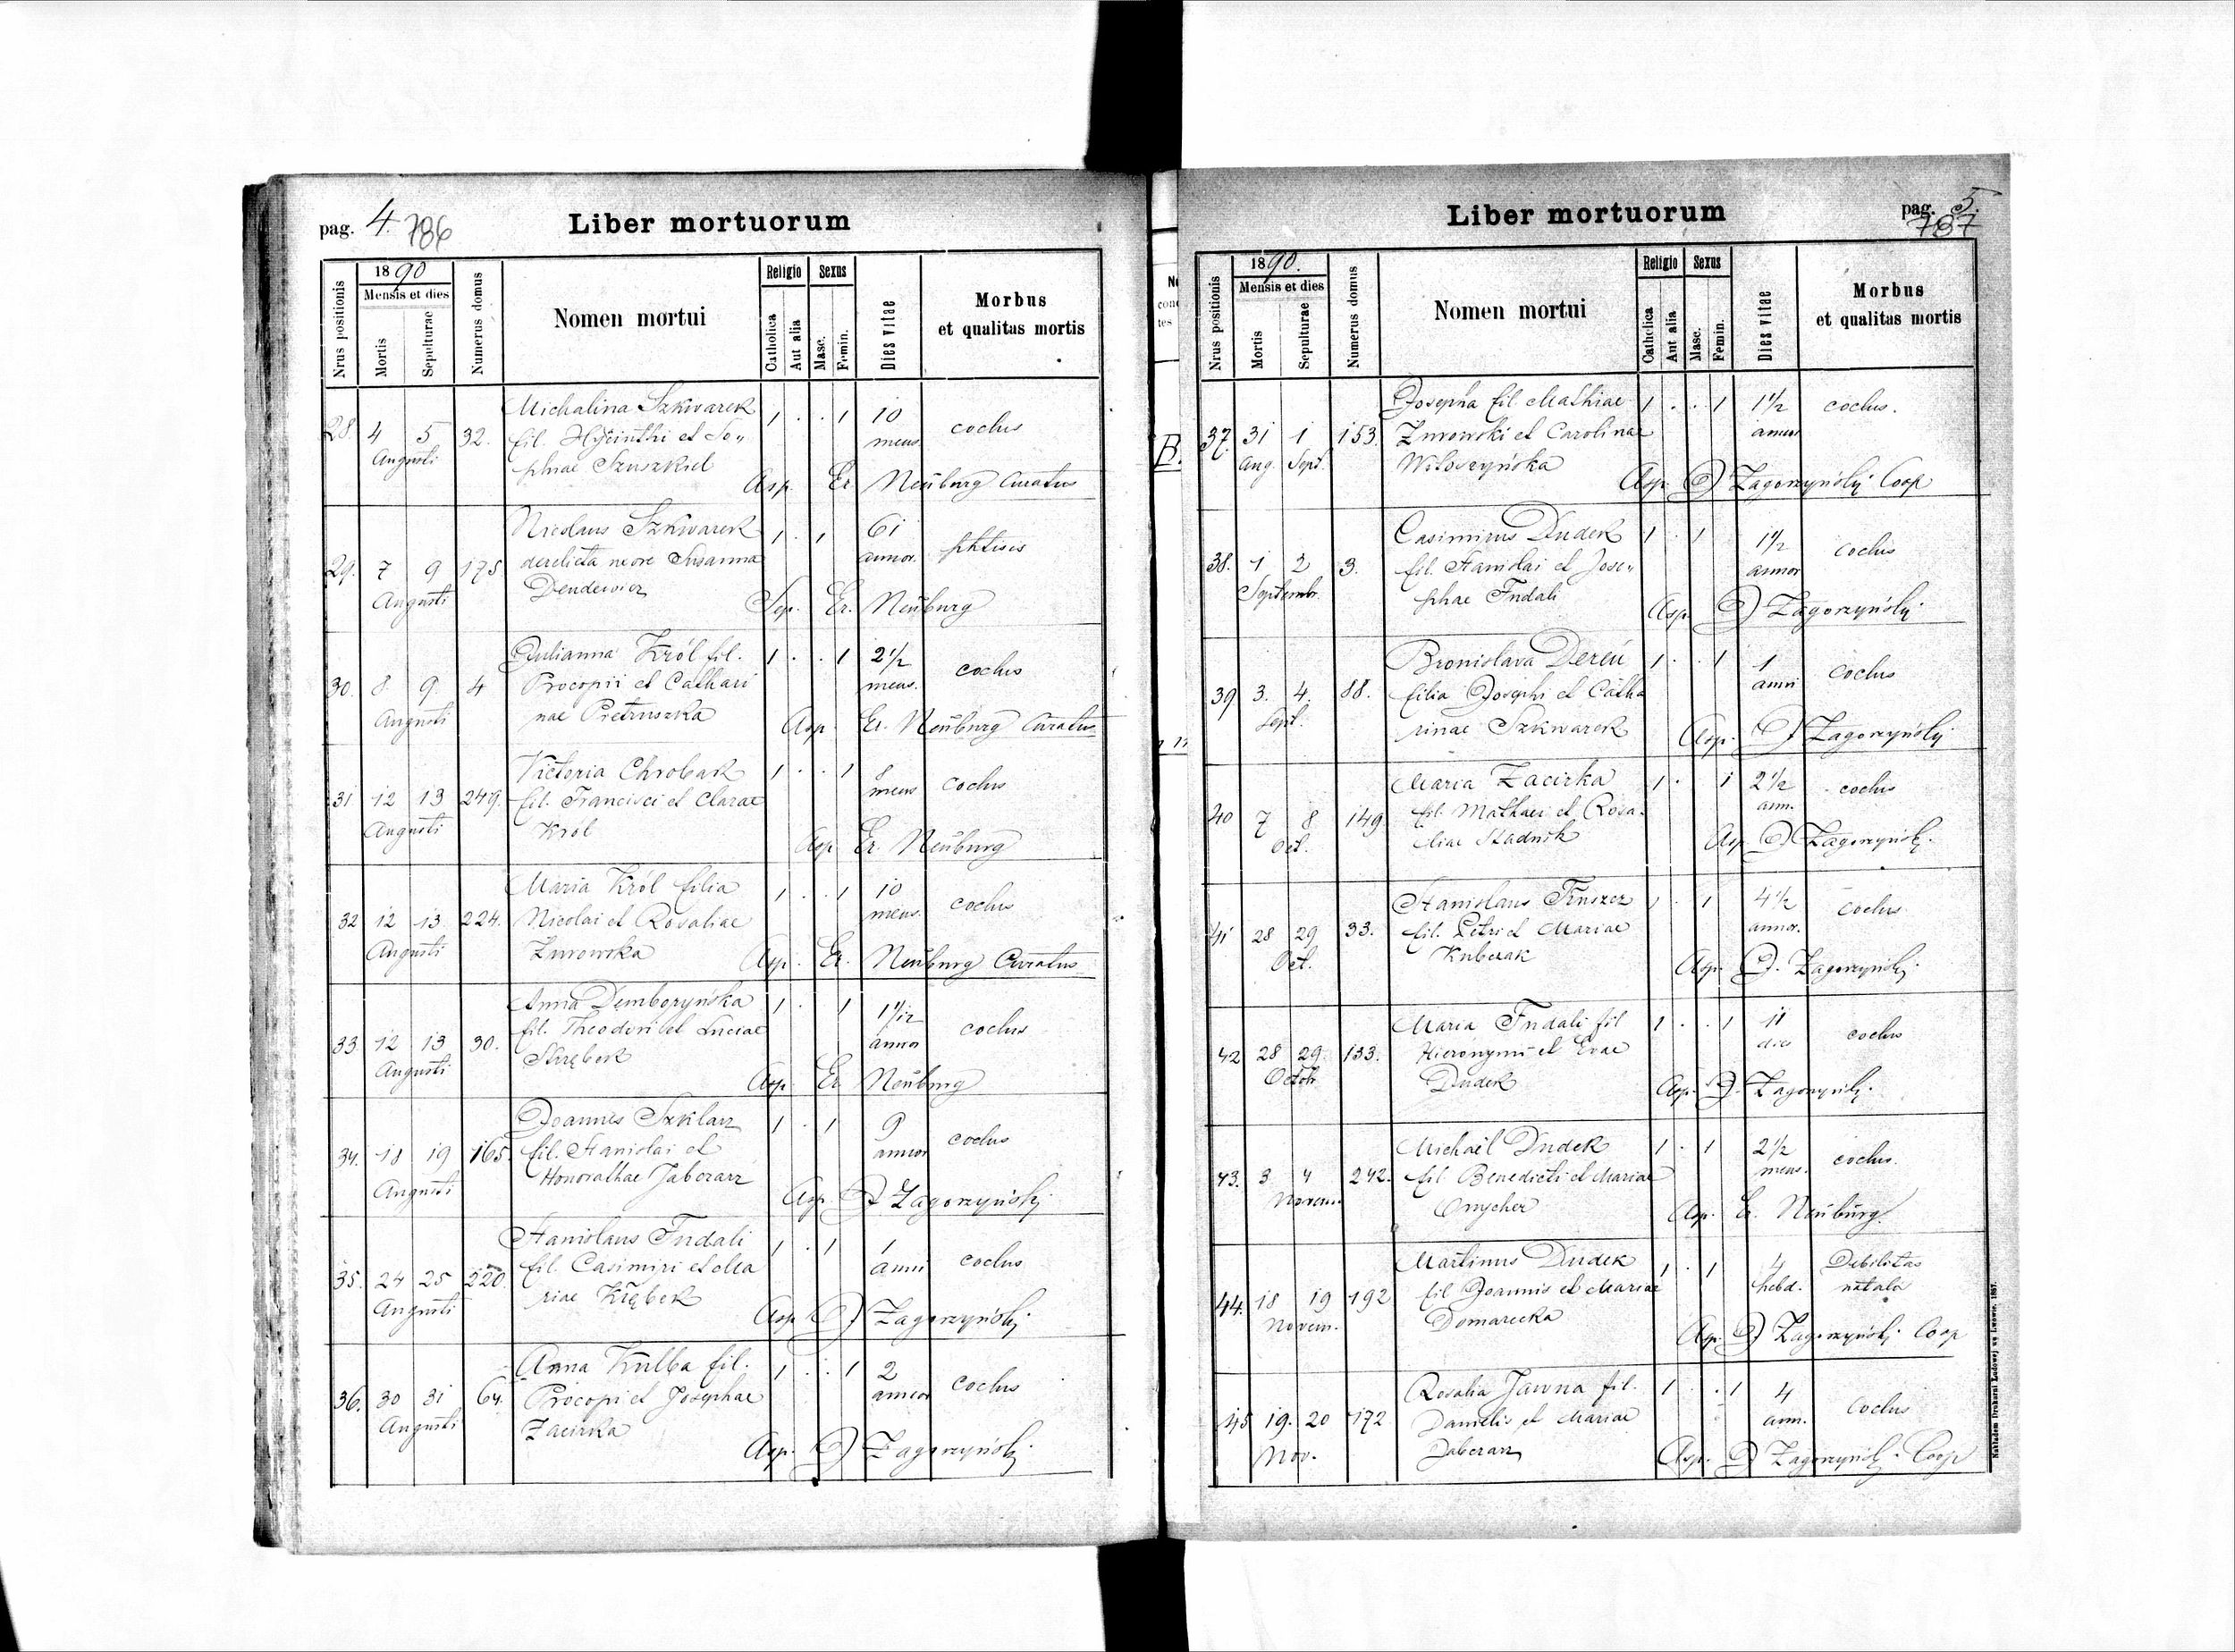 pag. 4. 786
Liber mortuorum
Nrus positionis
1890
Mensis et dies
Mortis
Sepulturae
Numerus domus
Nomen mortui
Religio
Catholica
Aut alia
Sexus
Masc.
Femin.
Dies vitae
Morbus
et qualitas mortis
28. 4 5 32. Michalina Szkwarek 1 . . 1 10 coclus
Augusti fil. Hycinthi et So„ mens.
phiae
Asp. Er Neüburg Curatus
29. 7 9 175 Nicolaus Szkwarek 1 . 1 61 phtisis
Augusti derelicta uxore Susanna annor.
Dendewicz
Sep. Er. Neüburg
30. 8. 9. 4 Julianna Król fil. 1 . . 1 2 1/2 coclus
Augusti Procopii et Cathari mens.
nae Pietruszka
Asp. Er. Neüburg Curatus
31 12 13 249. Victoria Chrobak 1 . . 1 8 coclus
Augusti fil. Francisci et Clarae mens
Król
Asp Er. Neüburg
32 12 13 224. Maria Król filia 1 . . 1 10 coclus
Augusti Nicolai et Rosaliae mens.
Żurowska
Asp. Er. Neüburg Curatus
33. 12 13 30. Anna Demboryńska 1 . 1 1 1/12 coclus
Augusti fil. Theodori et Luciae annor
Asp. Er Neüburg
34. 18 19 165. Joannes Szklarz 1 . 1 9 coclus
Augusti fil. Stanislai et annor
Honorathae Jabczarz
Asp. J Zagorzyński
35. 24 25 220. Stanislaus Fudali 1 . 1 1 coclus
Augusti fil. Casimiri et Ma anni
riae
Asp J Zagorzyński
36. 30 31 64. Anna Kulba fil. 1 . . 1 2 coclus
Augusti Procopi et Josephae annor
Zacirka
Asp. J Zagorzyński
pag. 5.
787
Liber mortuorum
Nrus positionis
1890.
Mensis et dies
Mortis
Sepulturae
Numerus domus
Nomen mortui
Religio
Catholica
Aut alia
Sexus
Masc.
Femin.
Dies vitae
Morbus
et qualitas mortis
37. 31 1 153. Josepha fil. Mathiae 1 . . 1 1 1/2 coclus.
Aug. Sept. Żurowski et Carolinae annor
Wiloszyńska
Asp. J Zagorzyński Coop
38. 1 2 3. Casimirus Dudek 1 . 1 1 1/2 coclus
Septembr. fil. Stanislai et Jose„ annor
phae Fudali
Asp. J Zagorzyński
39 3. 4. 88. Bronislava Dereń 1 . 1 1 coclus
Sept. filia Josephi et Catha anni
rinae Szkwarek
Asp. J Zagorzyński
40 7 8 149 Maria Zacirka 1 . 1 2 1/2 coclus
Oct. fil. Mathaei et Rosa- ann.
liae Stadnik
Asp J Zagorzyński.
41 28 29 33. Stanislaus Truszcz 1 . 1 4 1/2 coclus
Oct. fil. Petri et Mariae annor.
Kubczak
Asp. J. Zagorzyński.
42 28 29. 133. Maria Fudali fil 1 . . 1 11 coclus
Octob. Hieronymi et Evae dies
Dudek
Asp. J. Zagorzyński.
43. 3 4 242. Michaël Dudek 1 . 1 2 1/2 coclus.
Novem. fil. Benedicti et Mariae mens.
Asp. Er. Neüburg.
44. 18 19 192 Martinus Dudek 1 . 1 4 Debilitas
Novem. fil Joannis et Mariae hebd. natale
Domarecka
Asp. J Zagorzyński Coop
45 19. 20 172 Rosalia Jawna fil. 1 . 1 4 Coclus
Nov. Danielis et Mariae ann.
Jabczarz
Asp. J Zagorzyński Coop
Nakładem Drukarni Ludowej we Lwowie. 1887.